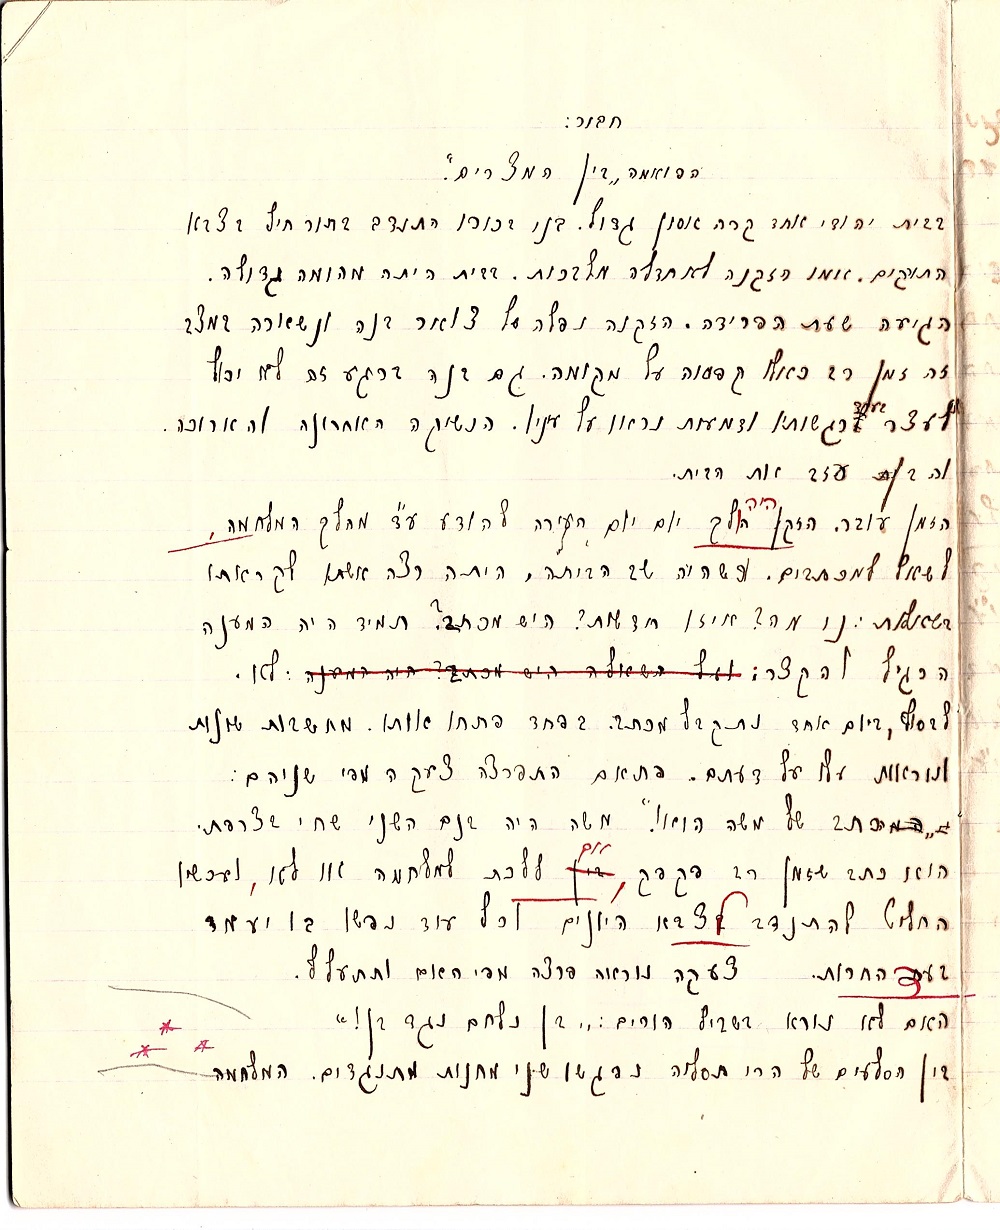 חבור:
הפואמה „בין המצרים".
בבית יהודי אחד קרה אסון גדול. בני בכורו התנדב בתור חיל בצבא
התורקים. אמו הזקנה לא חדלה מלבכות. בבית היתה מהומה גדולה.
הגיעה שעת הפרידה. הזקנה נפלה על צואר בנה ונשארה במצב
זה זמן רב כאלו קפאה על מקומה. גם בנה ברגע זה לא יכול
לעצר בעד רגשותיו ודמעות נראו על עיניו. הנשיקה האחרונה והארוכה.
והבן עזב את הבית.
הזמן עובר. הזקן היה הולך יום יום העירה להודע ע"ד מהלך המלחמה,
לשאל למכתבים. כשהיה שב הביתה, היתה רצה אשתו לקראתו
בשאלות: נו מה? איזו חדשות? היש מכתב? תמיד היה המענה
הרגיל והקצר: ועל השאלה היש מכתב? היה המענה: לא.
לבסוף, ביום אחד נתקבל מכתב. בפחד פתחו אותו. מחשבות שונות
ונוראות עלו על דעתם. פתאם התפרצה צעקה מפי שניהם:
„המכתב של משה הוא!" משה היה בנם השני שחי בצרפת.
הוא כתב שזמן רב פקפק, בין אם ללכת למלחמה או לא, ועכשו
החליט להתנדב לצבא היונים וכל עוד נפשו בו יעמד
בעד החרות. צעקה נוראה פרצה מפי האם ותתעלף.
האם לא נורא בשביל הורים: „בן נלחם נגד בן!"
בין הסלעים של הרי תסליה נפגשו שני מחנות מתנגדים. המלחמה